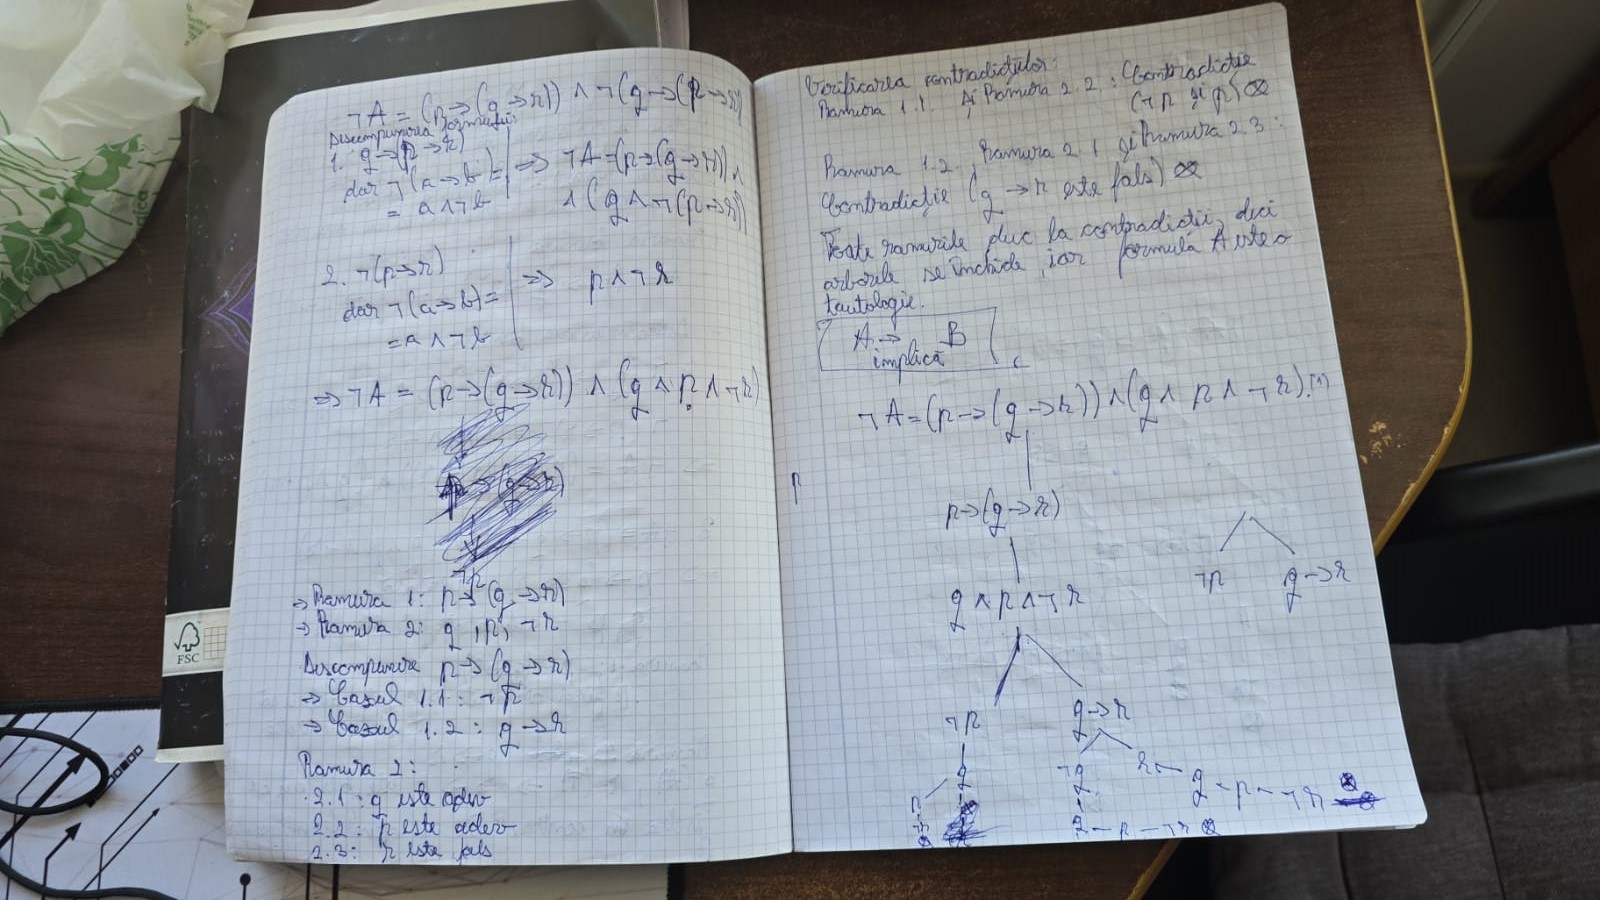 ¬A = (p→(q→r)) ∧ ¬(q→(p→r))
Descompunerea formulei:
1. q→(p→r)
dar ¬(a→b) =
= a∧¬b
=> ¬A=(p→(q→r)) ∧
∧ (q∧¬(p→r))
2. ¬(p→r)
dar ¬(a→b)=
=a∧¬b
=> p∧¬r
=> ¬A = (p→(q→r)) ∧ (q∧p∧¬r)
¬p
→ Ramura 1: p→(q→r)
→ Ramura 2: q, p, ¬r
Descompunere p→(q→r)
→ Cazul 1.1: ¬p
→ Cazul 1.2: q→r
Ramura 2:
2.1: q este adev
2.2: p este adev
2.3: r este fals
Verificarea contradicțiilor:
Ramura 1.1. și Ramura 2.2: Contradicție
(¬p și p) ⊗
Ramura 1.2., Ramura 2.1 și Ramura 2.3:
Contradicție (q→r este fals) ⊗
Toate ramurile duc la contradicții, deci
arborele se închide, iar formula A este o
tautologie.
A → B
implică
¬A=(p→(q→r))∧(q∧p∧¬r).(1)
p
p→(q→r)
¬p q→r
q∧p∧¬r
¬p q→r
q ¬q r - q - p - ¬r ⊗
p
¬r
q - p - ¬r ⊗
FSC